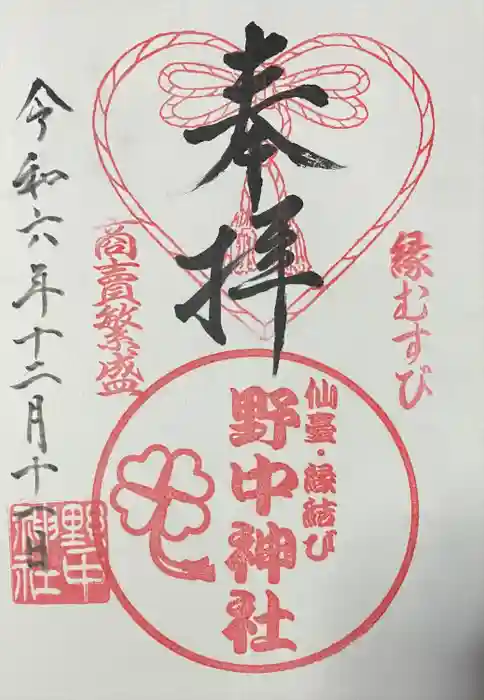 奉拝
縁むすび
商賣繁盛
仙臺・縁結び
野中神社
令和六年十二月十一日
野中
神社